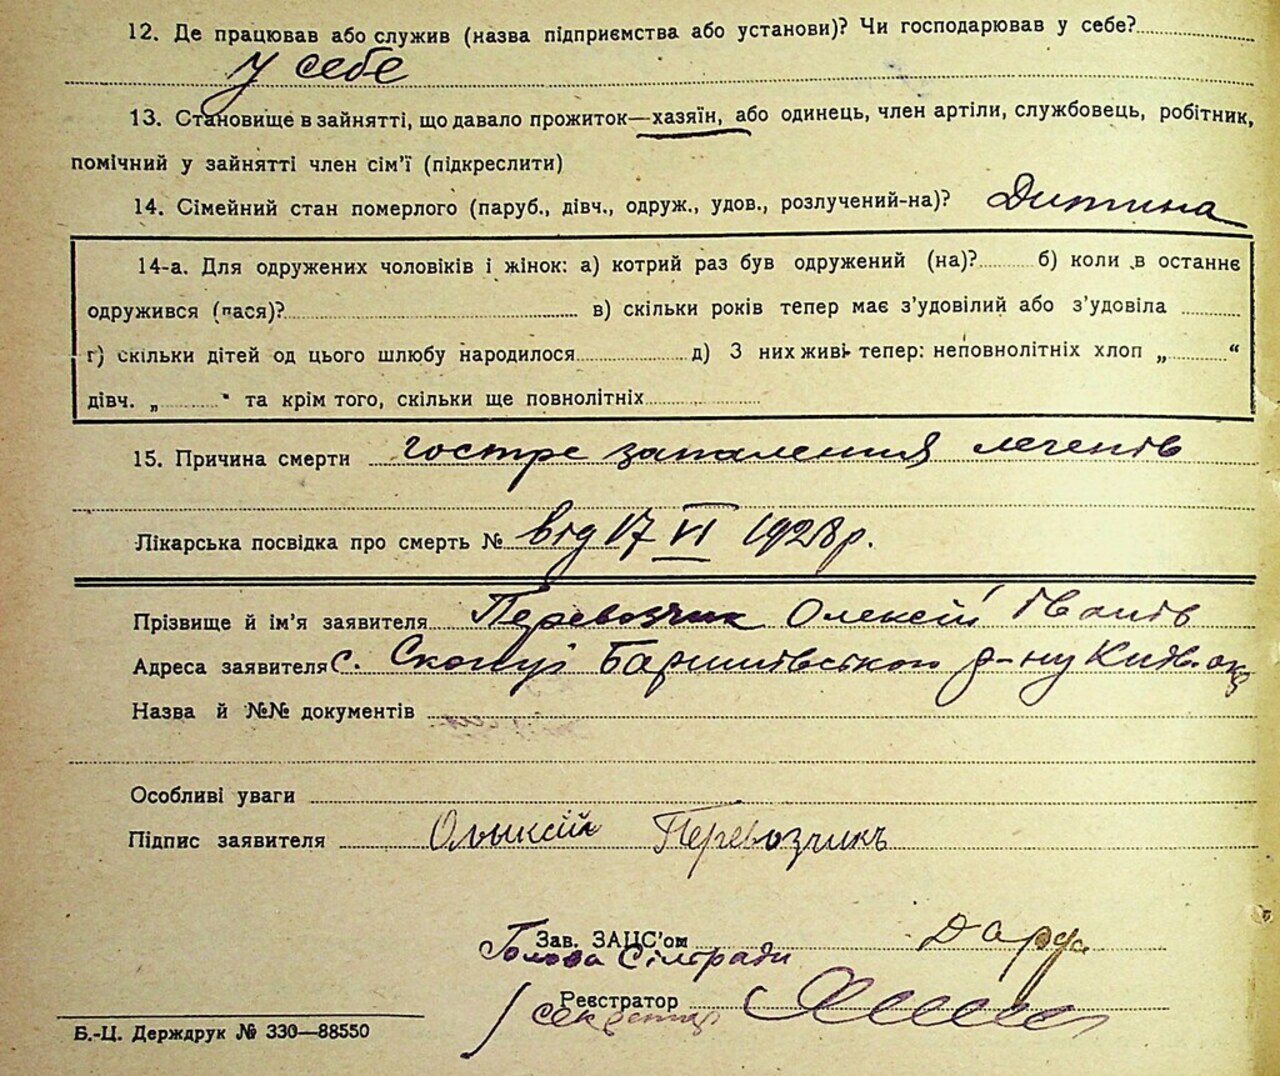 12. Де працював або служив (назва підприємства або установи)? Чи господарював у себе?
У себе
13. Становище в зайнятті, що давало прожиток—хазяїн, або одинець, член артіли, службовець, робітник,
помічний у зайнятті член сім’ї (підкреслити)
14. Сімейний стан померлого (паруб., дівч., одруж., удов., розлучений-на)? Дитина
14-а. Для одружених чоловіків і жінок: а) котрий раз був одружений (на)? б) коли в останнє
одружився (лася)? в) скільки років тепер має з’удовілий або з’удовіла
г) скільки дітей од цього шлюбу народилося д) З них живі тепер: неповнолітніх хлоп „ “
дівч. „ “ та крім того, скільки ще повнолітніх
15. Причина смерти гостре запалення легенів
Лікарська посвідка про смерть № від 17 VI 1928 р.
Прізвище й ім’я заявителя Перевозчик Олексій Іванів
Адреса заявителя с. Скопці Баришівського р-ну Київ. окр
Назва й №№ документів
Особливі уваги
Підпис заявителя Олыксій Перевозчикъ
Зав. ЗАЦС’ом
Голова Сілради
Реєстратор
секретар
Б.-Ц. Держдрук № 330—88550